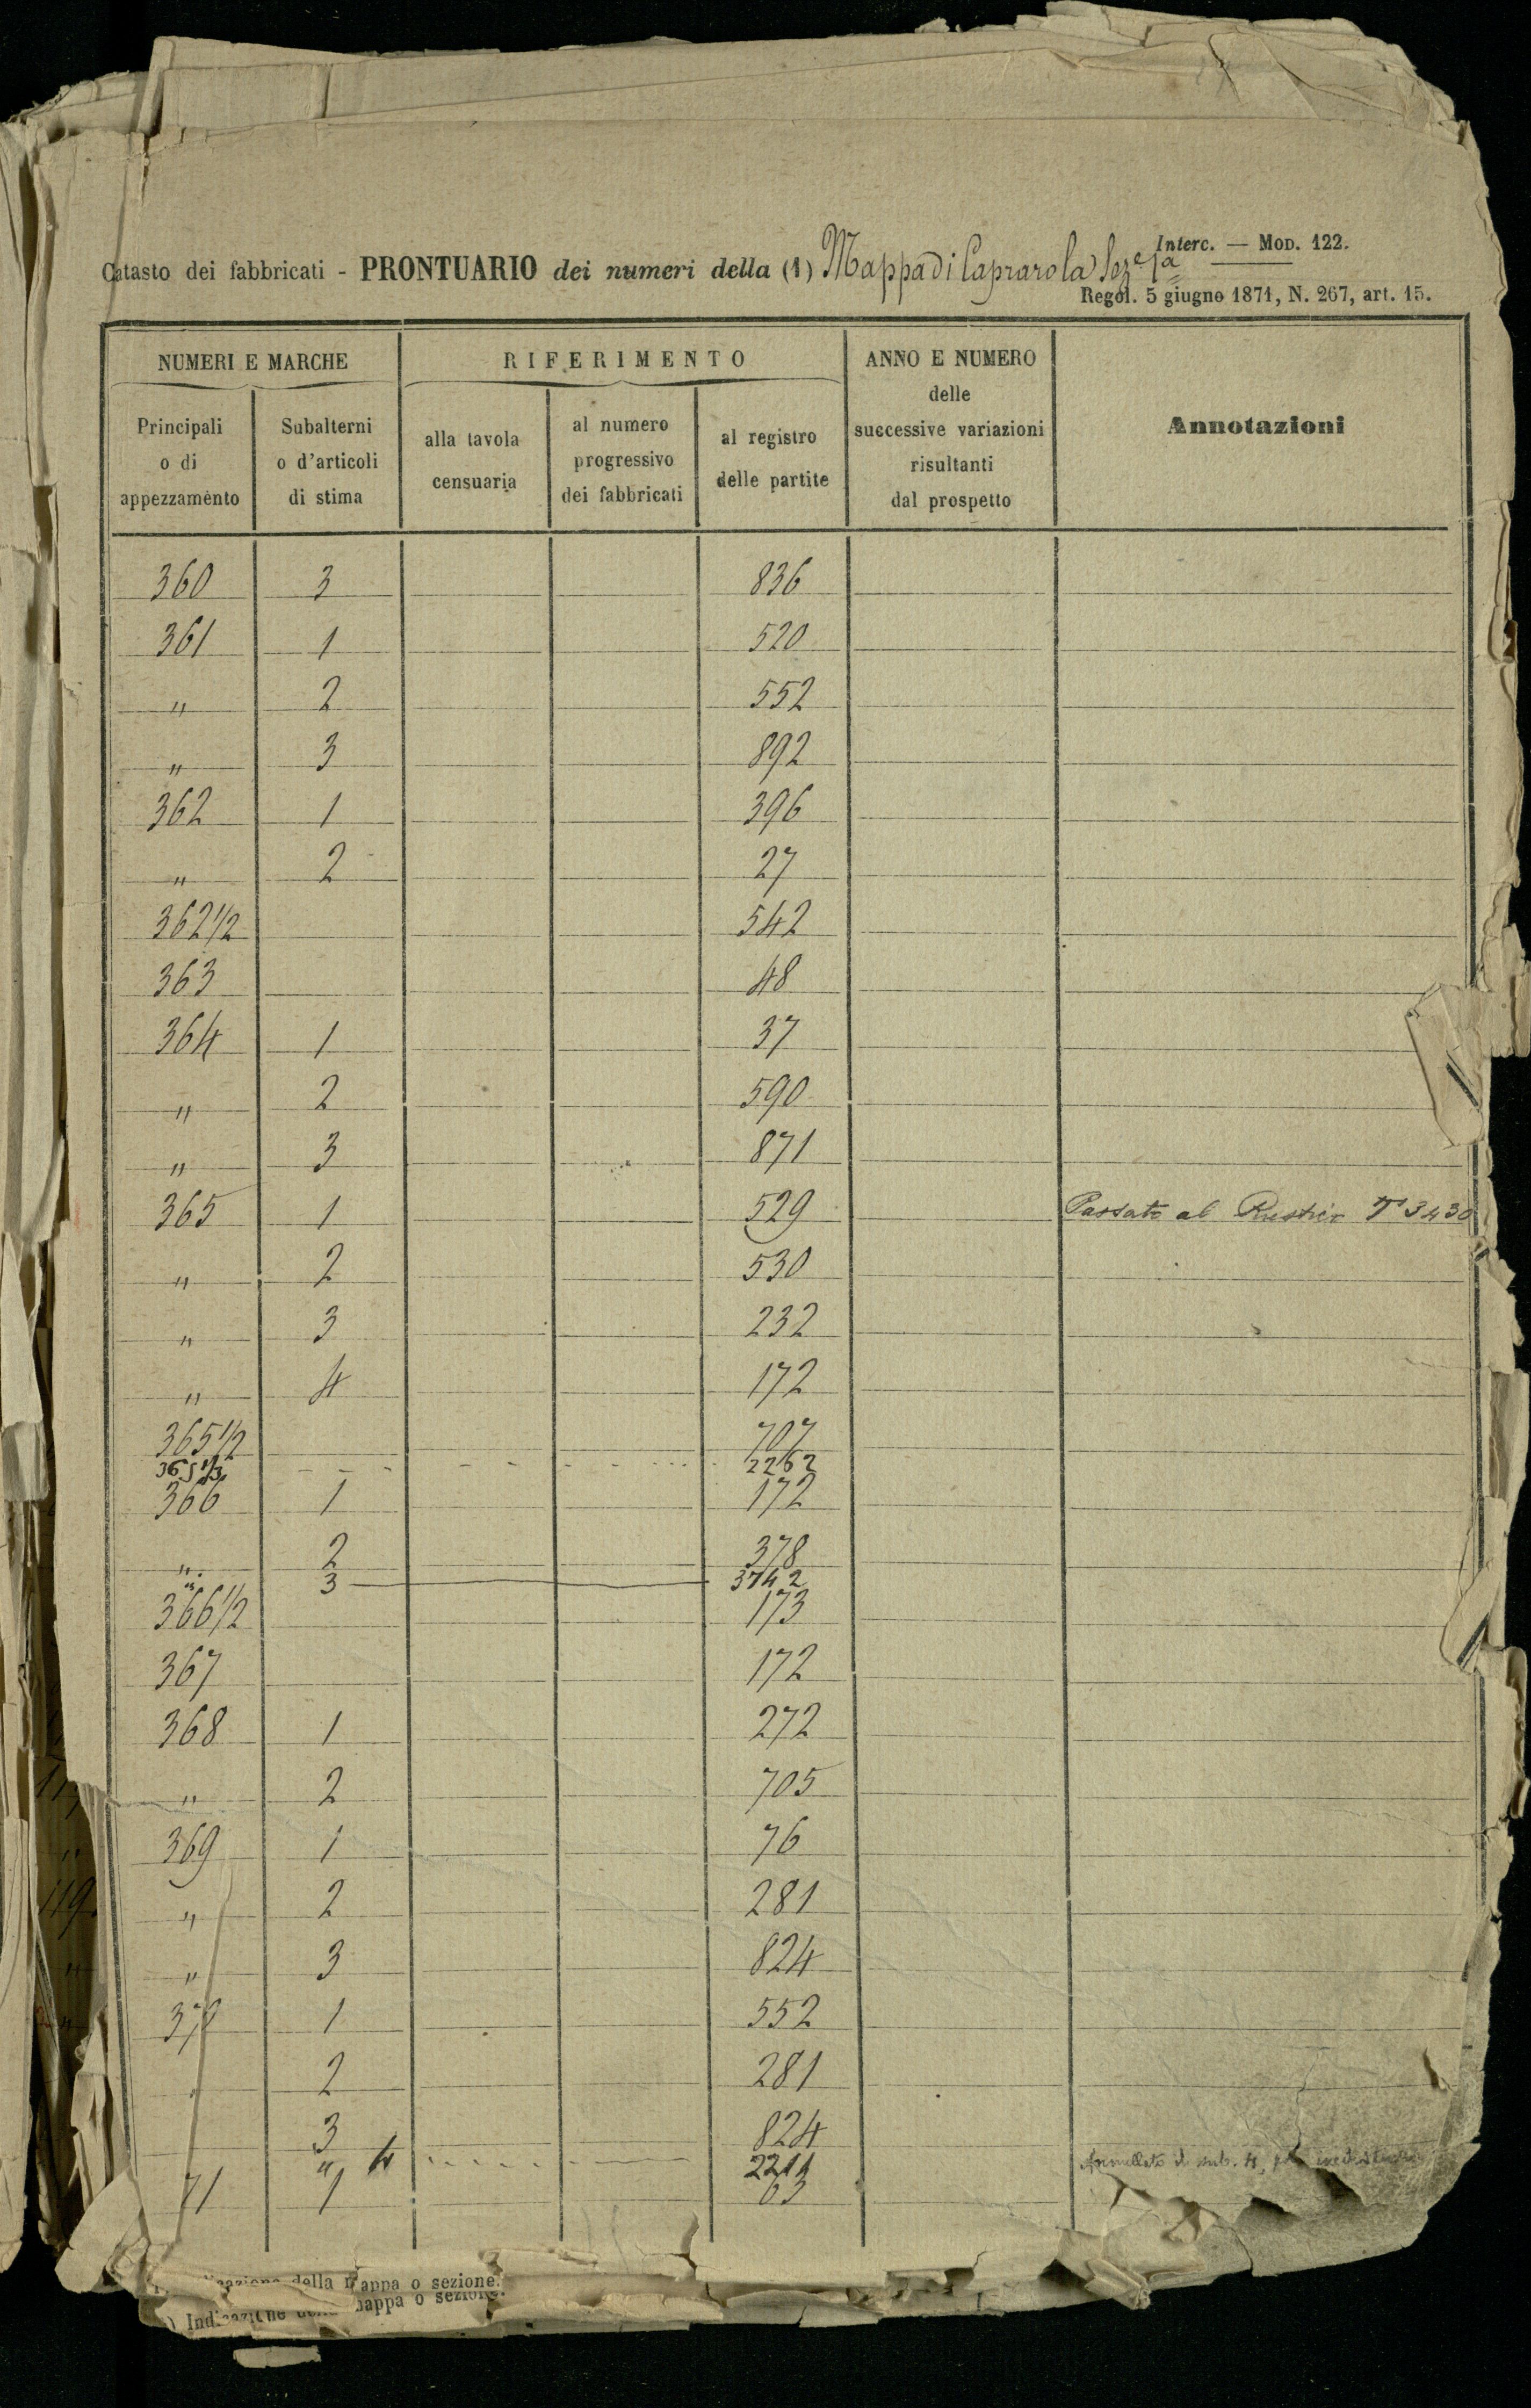 Interc. — MOD. 122.
Catasto dei fabbricati - PRONTUARIO dei numeri della (1) Mappa di Caprarola Sez.e 1a
Regol. 5 giugno 1871, N. 267, art. 15.
NUMERI E MARCHE RIFERIMENTO ANNO E NUMERO delle successive variazioni risultanti dal prospetto Annotazioni
Principali o di appezzamento Subalterni o d'articoli di stima alla tavola censuaria al numero progressivo dei fabbricati al registro delle partite
360 3 836
361 1 520
" 2 552
" 3 892
362 1 396
" 2 27
362 1/2 542
363 48
364 1 37
" 2 590
" 3 871
365 1 529 Passato al Rustico T 3430
" 2 530
" 3 232
" 4 172
365 1/2 707
365 1/3 2262
366 1 172
" 2 378
" 3 3742
366 1/2 173
367 172
368 1 272
" 2 705
369 1 76
" 2 281
" 3 824
370 1 552
2 281
3 824
" 4 2211 Annullato il sub. 4,
71 1 63
della Mappa o sezione.
) Indicazione mappa o sezione.